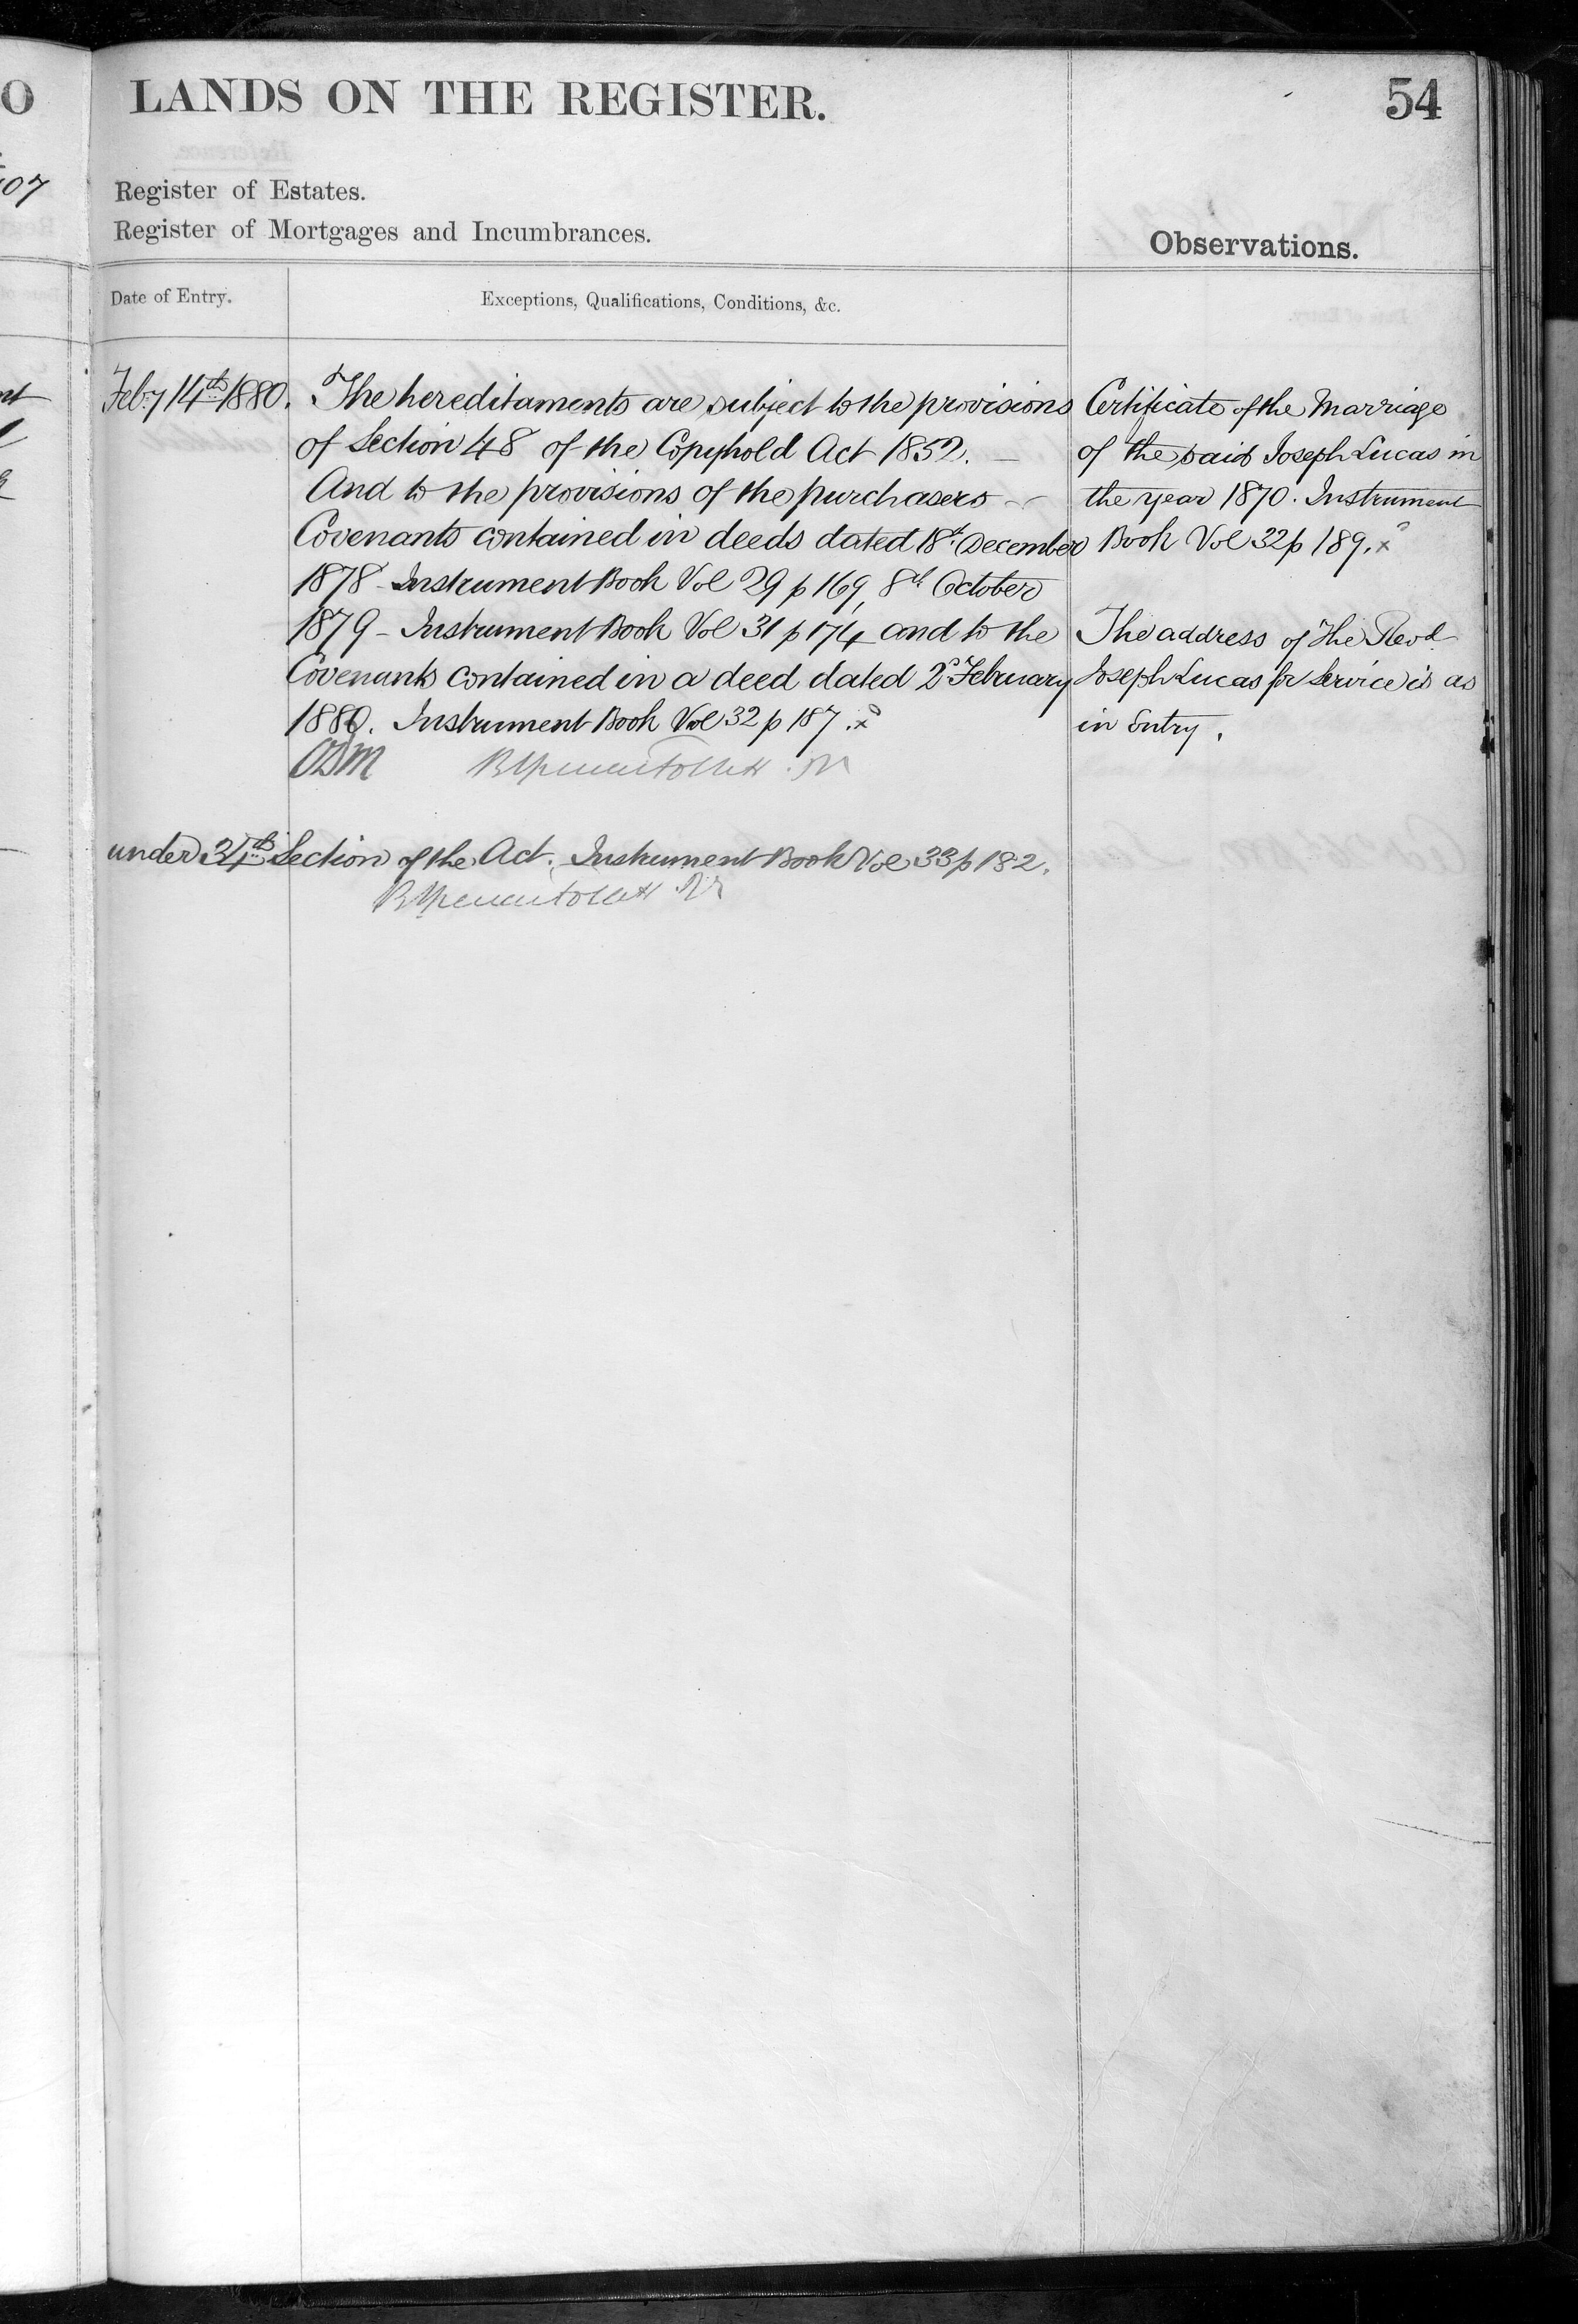 O
107
LANDS ON THE REGISTER.
54
Register of Estates.
Register of Mortgages and Incumbrances.
Observations.
Date of Entry.
Exceptions, Qualifications, Conditions, &c.
Feb:y 14th 1880.
The hereditaments are subject to the provisions
of Section 48 of the Copyhold Act 1852. —
And to the provisions of the purchasers —
Covenants contained in deeds dated 18th December
1878 - Instrument Book Vol 29 p 169, 8th October
1879 - Instrument Book Vol 31 p 174 and to the
Covenants contained in a deed dated 2d February
1880. Instrument Book Vol 32 p 187. x
Certificate of the Marriage
of the said Joseph Lucas in
the year 1870. Instrument
Book Vol 32 p 189. x
The address of the Revd
Joseph Lucas for Service is as
in Entry.
under 34th Section of the Act. Instrument Book Vol 33 p 182.